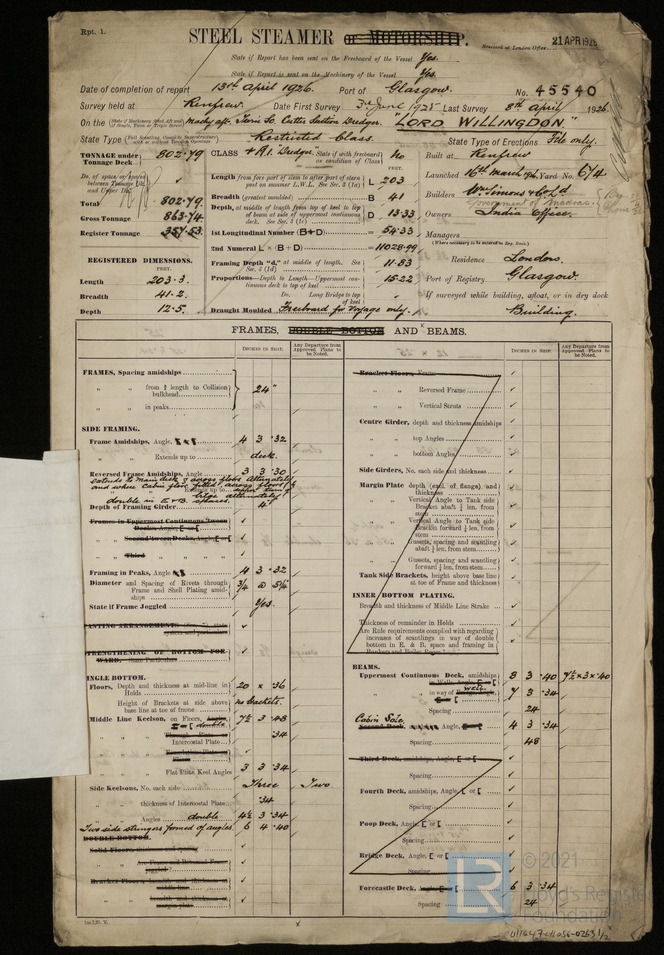 Rpt. 1.
STEEL STEAMER or MOTORSHIP.
Received at London Office 21 APR 1926
State if Report has been sent on the Freeboard of the Vessel Yes.
State if Report is sent on the Machinery of the Vessel Yes.
Date of completion of report 13th April 1926. Port of Glasgow. No. 45540
Survey held at Renfrew. Date First Survey 3rd June 1925 Last Survey 8th April 1926
On the Machy aft. Twin Sc. Cutter Suction Dredger. "LORD WILLINGDON."
State Type Restricted Class. State Type of Erections F'cle only.
TONNAGE under Tonnage Deck 802.79
Total 802.79
Gross Tonnage 863.74
Register Tonnage 357.53
REGISTERED DIMENSIONS.
FEET.
Length 203.3
Breadth 41.2
Depth 12.5
CLASS +A1. "Dredger" State if with freeboard as condition of Class No
FEET.
Length from fore part of stem to after part of stern post on summer L.W.L. See Sec. 3 (1a) L 203
Breadth (greatest moulded) B 41
Depth, at middle of length from top of keel to top of beam at side of uppermost continuous deck. See Sec. 3 (1c) D 13.33
1st Longitudinal Number (B+D) = 54.33
2nd Numeral L × (B + D) = 11028.99
Framing Depth "d," at middle of length. See Sec. 3 (1d) 11.53
Proportions—Depth to Length—Uppermost continuous deck to top of keel 15.22
Do. Long Bridge to top of keel
Draught Moulded Freeboard for Voyage only.
Built at Renfrew
Launched 16th March '26 Yard No. 674
Builders Wm Simons & Co Ld
Owners Government of Madras. India Office.
Managers
(Where necessary to be entered in Reg. Book.)
Residence London.
Port of Registry Glasgow.
If surveyed while building, afloat, or in dry dock
Building.
FRAMES, DOUBLE BOTTOM AND BEAMS.
INCHES IN SHIP.
Any Departure from Approved Plans to be Noted.
INCHES IN SHIP.
Any Departure from Approved Plans to be Noted.
FRAMES, Spacing amidships
" " from ⅗ length to Collision bulkhead 24"
" " in peaks
SIDE FRAMING.
Frame Amidships, Angle 4 3 .32
" " Extends up to deck.
Reversed Frame Amidships, Angle 3 3 .30
Depth of Framing Girder 4"
Frames in Uppermost Continuous 'tween Decks, Angle, [ or [
" " Second 'tween Decks, Angle, [ or [
" " Third
Framing in Peaks, Angle 4 3 .32
Diameter and Spacing of Rivets through Frame and Shell Plating amidships 3/4 @ 5¼
State if Frame Joggled Yes.
STRENGTHENING OF BOTTOM FORWARD.
SINGLE BOTTOM.
Floors, Depth and thickness at mid-line in Holds 20 × .36
Height of Brackets at side above base line at toe of frame no brackets.
Middle Line Keelson, on Floors, Angle, double 7½ 3 .48
" " Intercostal Plate .34
" " Flat Plate Keel Angles 3 3 .34
Side Keelsons, No. each side Three Two
" thickness of Intercostal Plate .34
" Angles double 4½ 3 .34
Two side stringers formed of angles 6 4 .40
DOUBLE BOTTOM.
Solid Floors
Bracket Floors, Frame
" " Reversed Frame
" " Vertical Struts
Centre Girder, depth and thickness amidships
" " top Angles
" " bottom Angles
Side Girders, No. each side and thickness
Margin Plate depth (excl. of flange) and thickness
" " Vertical Angle to Tank side Bracket abaft ¼ len. from stem
" " Vertical Angle to Tank side Bracket forward ¼ len. from stem
" " Gussets, spacing and scantling abaft ¼ len. from stem
" " Gussets, spacing and scantling forward ¼ len. from stem
Tank Side Brackets, height above base line at toe of Frame and thickness
INNER BOTTOM PLATING.
Breadth and thickness of Middle Line Strake
Thickness of remainder in Holds
Are Rule requirements complied with regarding increases of scantlings in way of double bottom in E. & B. space and framing in
BEAMS.
Uppermost Continuous Deck, amidships 8 3 .40 7½ × 3 × .40
" " in way of well. 7 3 .34
Spacing 24
Cabin Sole. Angle 4 3 .34
Spacing 48
Third Deck, amidships, Angle, [ or [
Spacing
Fourth Deck, amidships, Angle, [ or [
Spacing
Poop Deck, Angle, [ or [
Spacing
Bridge Deck, Angle, [ or [
Spacing
Forecastle Deck, Angle, [ or [ 6 3 .34
Spacing 24
LR
© 2021
Lloyd's Register
Foundation